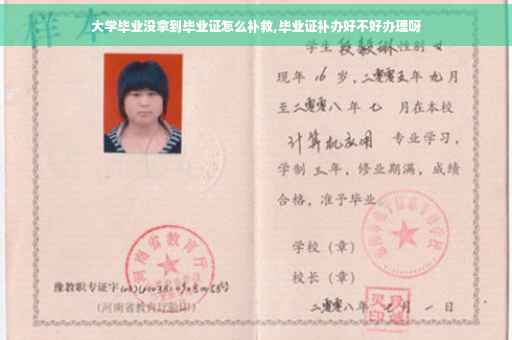 大学毕业没拿到毕业证怎么补救,毕业证补办好不好办理呀
样本
学生 段毅琳 性别 女
现年 16 岁，二零零五年 九月
至二零零八年 七 月在本校
计算机应用 专业学习，
学制 三年，修业期满，成绩
合格，准予毕业
学校（章）
校长（章）
二零零八年 七月 一日
河南省教育厅
豫教职专证字
(河南省教育厅验印)